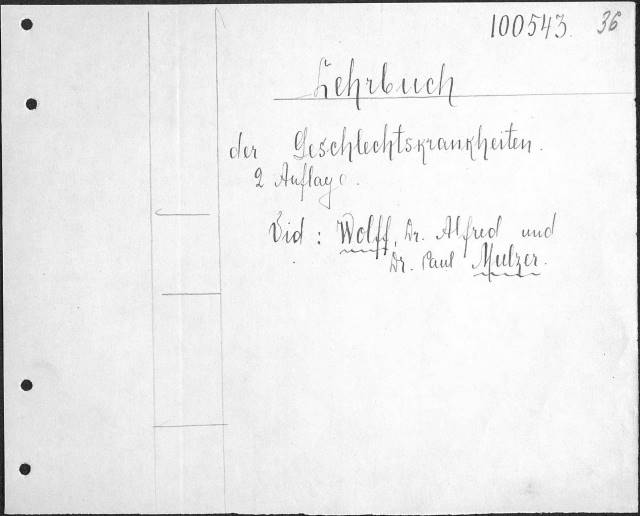 100543. 36
Lehrbuch
der Geschlechtskrankheiten.
2 Auflage.
Vid : Wolff, Dr. Alfred und
Dr. Paul Mulzer.